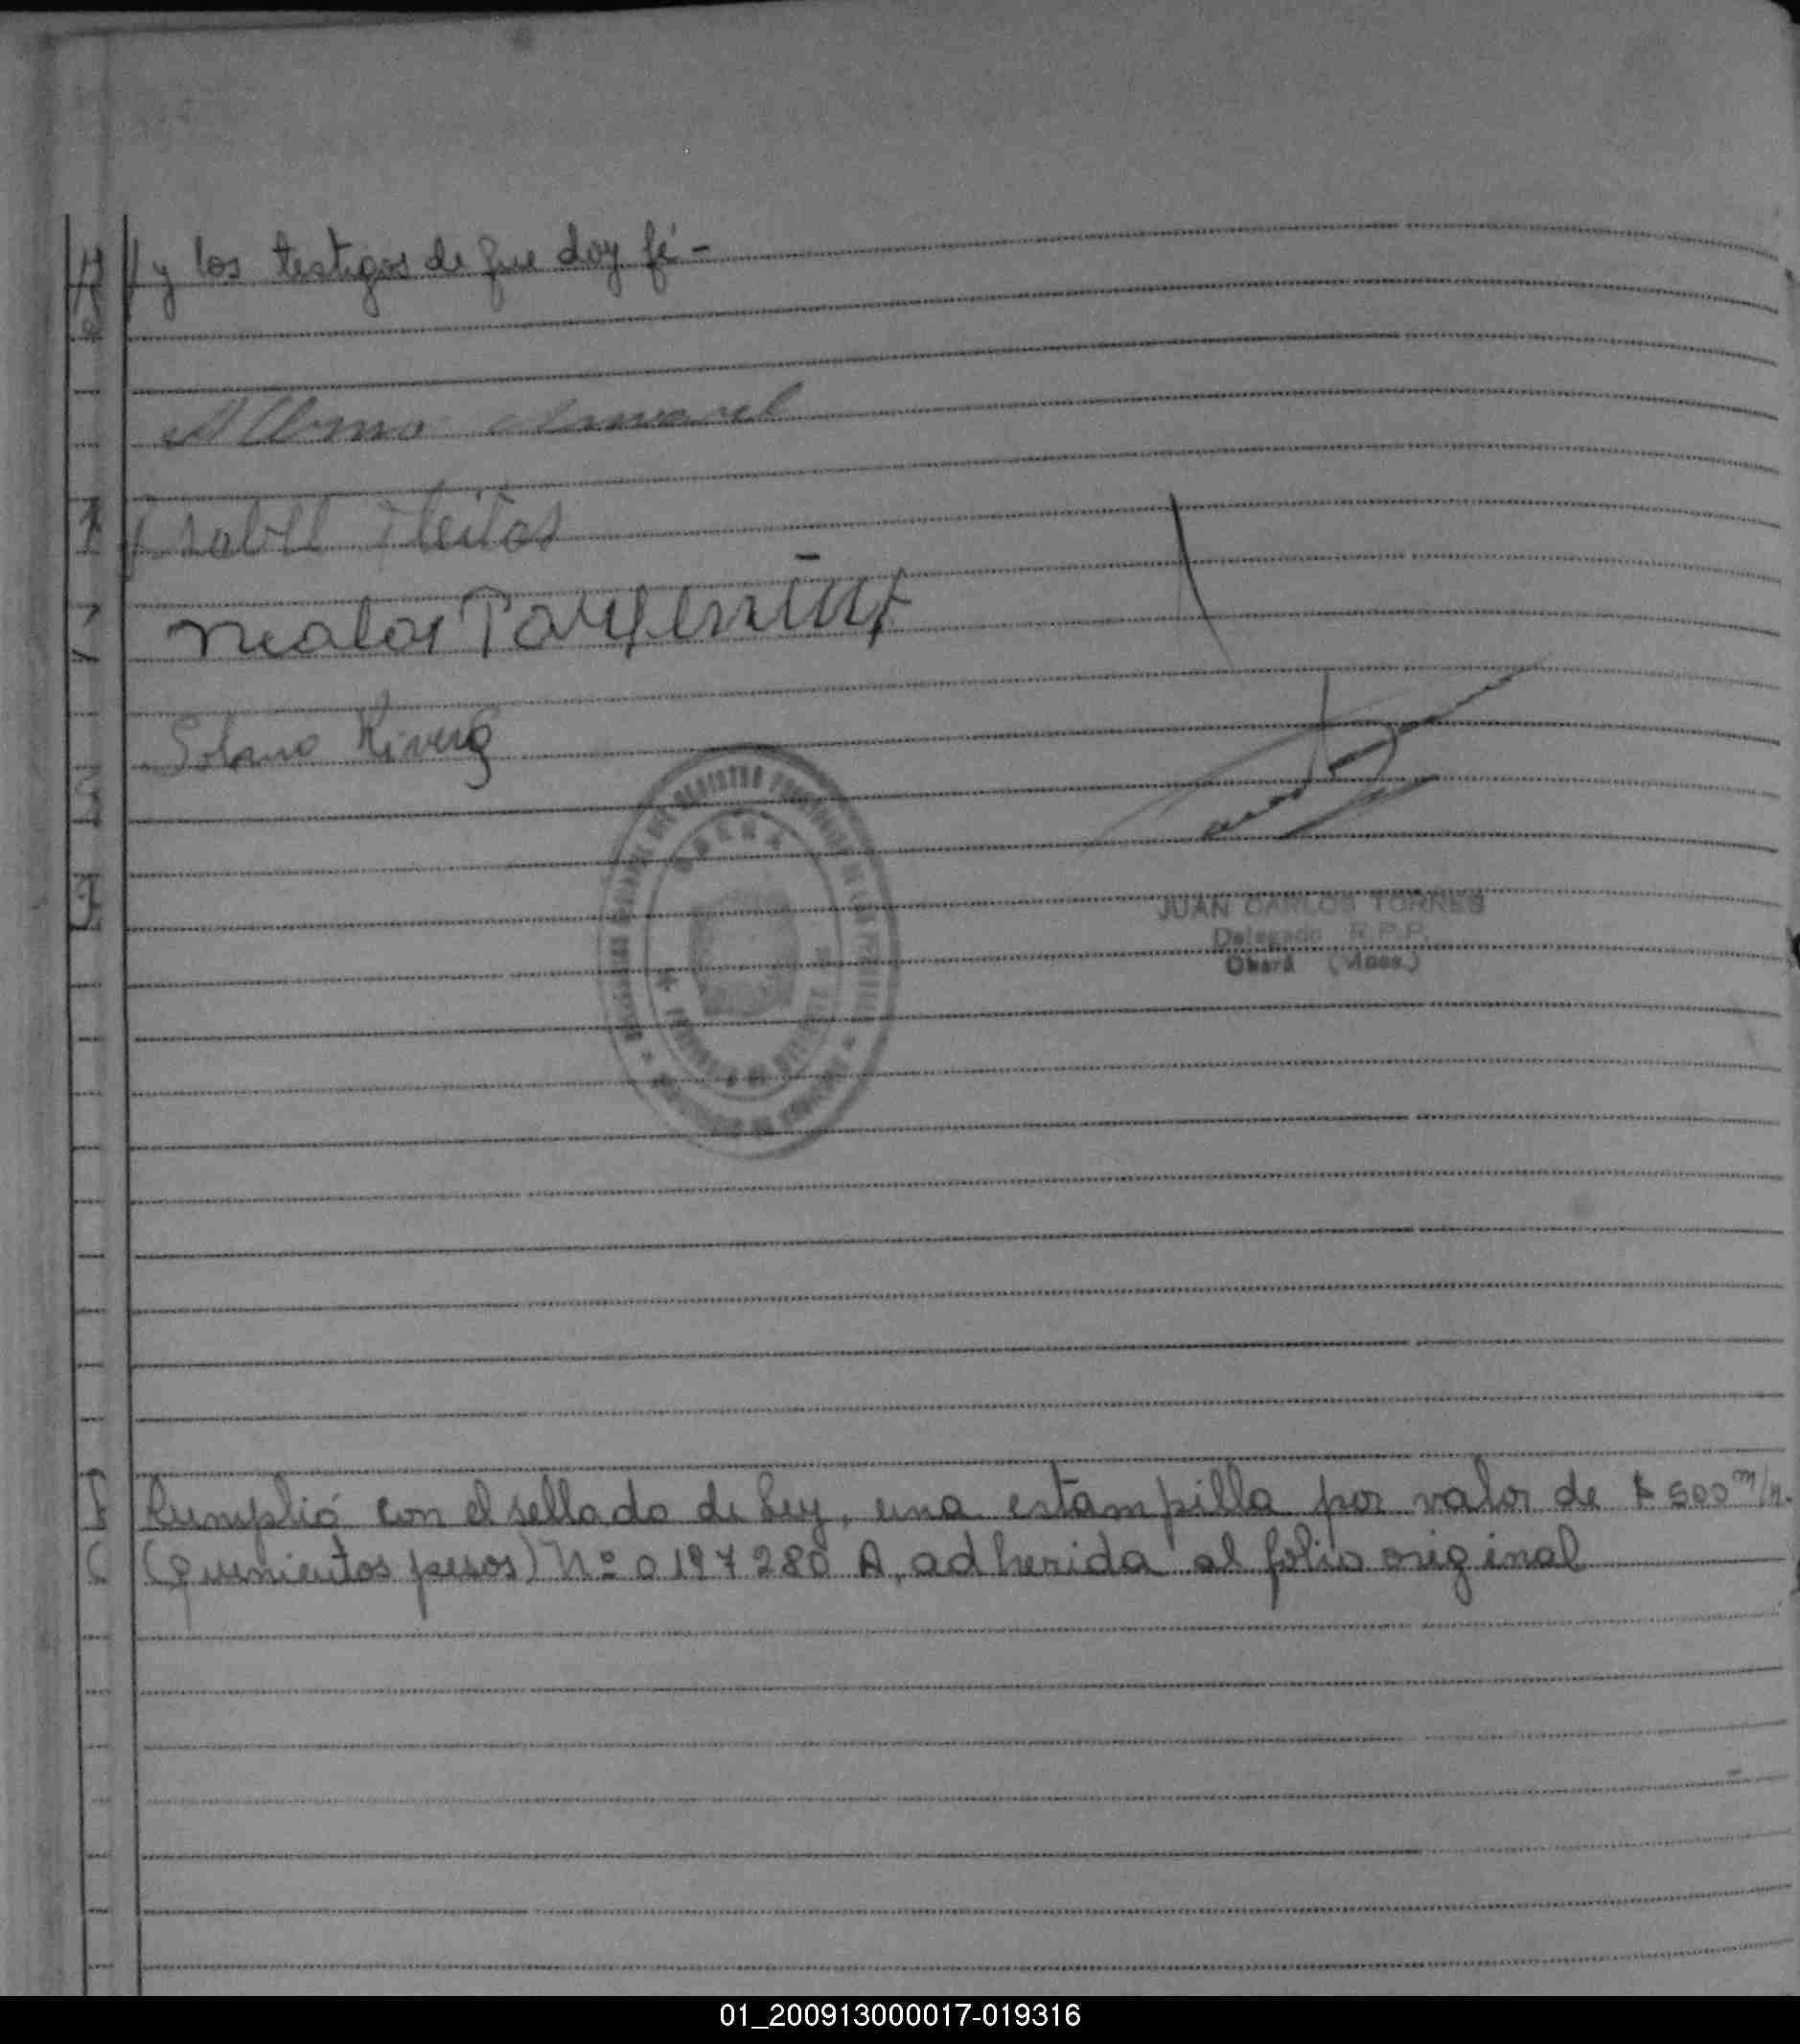 // y los testigos de que doy fé -
Isabel Fleitas
Solano Rivero
REGISTRO PROVINCIAL DE LAS PERSONAS
OBERA
JUAN CARLOS TORRES
Delegado R.P.P.
Oberá (Mnes.)
Cumplió con el sellado de Ley, una estampilla por valor de $ 500 m/n.
(quinientos pesos) Nº 0197280 A, adherida al folio original
01_200913000017-019316